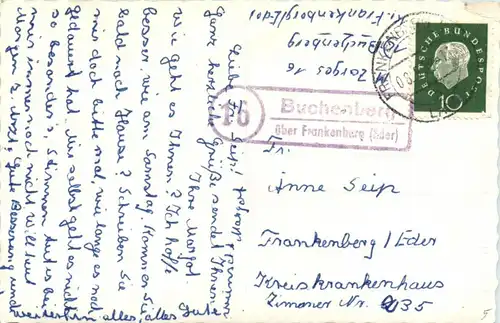 Zorges 16
Buchenberg
Kr. Frankenberg/Eder
Liebe
Wie geht es Ihnen? Ich hoffe
besser wie am Samstag. Können Sie
bald nach Hause? Schreiben Sie
mir doch bitte mal, wie lange es noch
gedauert hat. Mir selbst geht es nicht
so besonders, Stimmen tut es bei
mir immer noch nicht. Will
Morgen z. Arzt. Gute Besserung und
weiterhin alles, alles Gute
Ganz herzliche Grüße sendet Ihnen
Ihre Margot.
16
Buchenberg
über Frankenberg (Eder)
DEUTSCHE BUNDESPOST
10
FRANKENBERG
Fr.
Anne Seip
Frankenberg/Eder
Kreiskrankenhaus
Zimmer Nr. 035